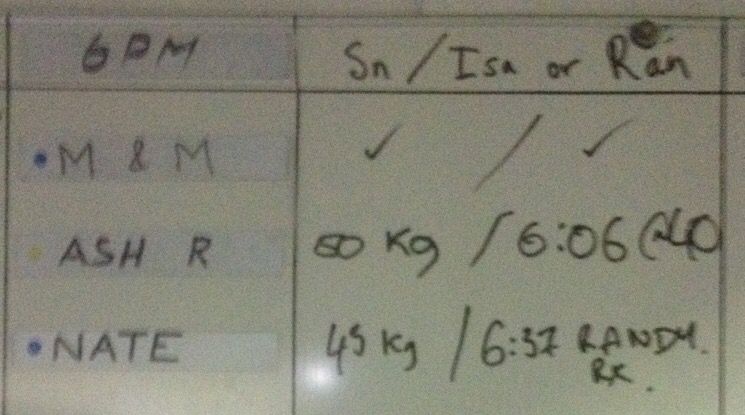 6PM Sn / Isa or Ran
• M & M ✓ / ✓
• ASH R 50 Kg / 6:06 @40
• NATE 45 Kg / 6:37 RANDY.
RX.